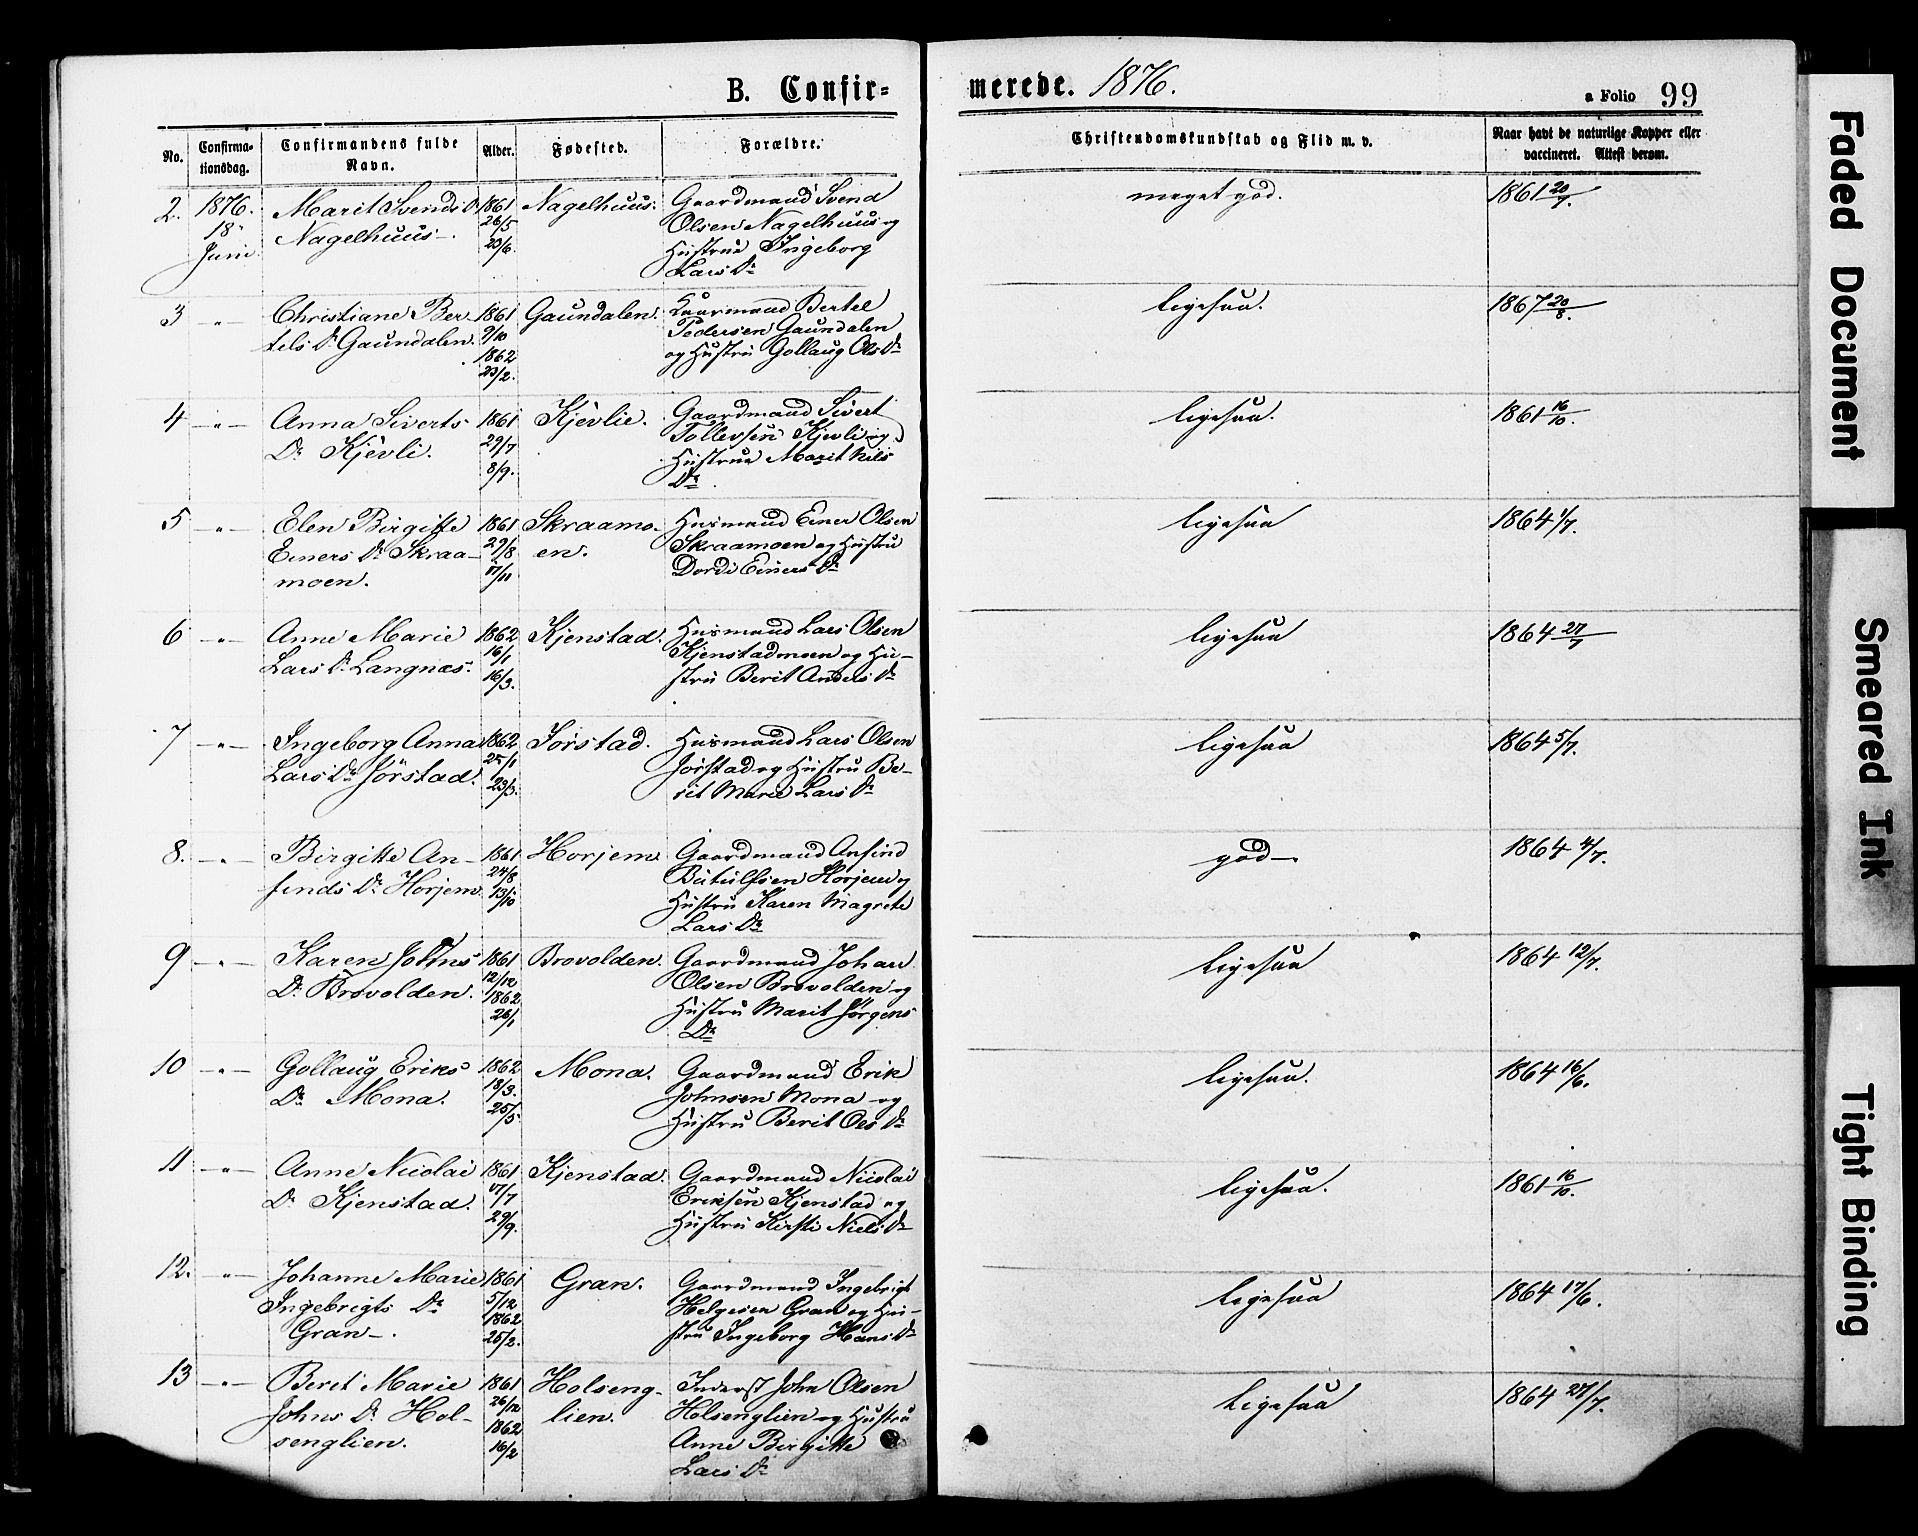 B. Confir=
merede. 1876.
a Folio 99
No.
Confirma-
tionsdag.
Confirmandens fulde
Navn.
Alder.
Fødested.
Forældre.
Christendomskundskab og Flid m. v.
Naar havt de naturlige Kopper eller
vaccineret. Attest derom.
2. 1876.
18de
Juni
Marit Svends Dr
Nagelhuus.
1861
26/5
23/6.
Nagelhuus.
Gaardmand Svend
Olsen Nagelhuus og
Hustrue Ingeborg
Lars Dr
meget god.
1861 20/7.
3 -"-
Christiane Ber
tels Dr Gaundalen.
1861
9/10
1862
23/2.
Gaundalen.
Gaarmand Bertel
Pedersen Gaundalen
og Hustru Gollaug Ols Dr
ligesaa.
1867 20/8.
4 -"-
Anna Siverts
Dr Kjevli.
1861
29/7
8/9.
Kjevlie.
Gaardmand Sivert
Tollevsen Kjevli og
Hustrue Marit Nils
Dr.
ligesaa.
1861 16/10.
5 -"-
Elen Birgitte
Einers Dr Skraa-
moen.
1861
29/8
17/11
Skraamo-
en.
Husmand Einer Olsen
Skraamoen og Hustru
Dordi Einers Dr
ligesaa
1864 1/7.
6 -"-
Anne Marie
Lars Dr Langnæs.
1862
16/1
16/3.
Kjenstad.
Husmand Lars Olsen
Kjenstadmoen og Hu-
stru Berit Anders Dr
ligesaa
1864 27/7
7 -"-
Ingeborg Anna
Lars Dr Jørstad.
1862
25/1
23/3.
Jørstad.
Husmand Lars Olsen
Jørstad og Hustru Be-
rit Marie Lars Dr
ligesaa
1864 5/7.
8. -"-
Birgitte An-
finds Dr Horjem
1861
24/8
13/10
Horjem
Gaardmand Anfind
Botulfsen Horjem og
Hustru Karen Magrete
Lars Dr
god.
1864 4/7.
9 -"-
Karen Johns
Dr Brovolden.
1861
12/12
1862
26/1
Brovolden.
Gaardmand Johan
Olsen Brovolden og
Hustru Marit Jørgens
Dr
ligesaa
1864 12/7.
10 -"-
Gollaug Eriks
Dr Mona.
1862
18/3.
25/5.
Mona.
Gaardmand Erik
Johnsen Mona og
Hustru Berit Oes Dr
ligesaa.
1864 16/6.
11 -"-
Anne Nicolai
Dr Kjenstad.
1861
17/7
29/9.
Kjenstad.
Gaardmand Nicolai
Eriksen Kjenstad og
Hustru Kirsti Niels Dr
ligesaa.
1861 16/10.
12. -"-
Johanne Marie
Ingebrigts Dr
Gran.
1861
5/12
1862
25/2.
Gran.
Gaardmand Ingebrigt
Helgesen Gran og Hu-
stru Ingeborg Hans Dr
ligesaa
1864 17/6.
13 -"-
Beret Marie
Johns Dr Hol-
senglien.
1861
26/12
1862
16/2
Holseng-
lien.
Inderst John Olsen
Holsenglien og Hustru
Anne Birgitte
Lars Dr
Ligesaa
1864 27/7.
Faded Document
Smeared Ink
Tight Binding